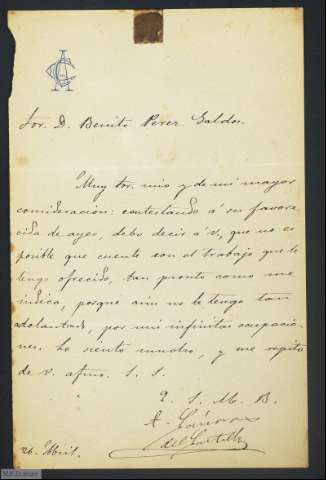 Sor. D. Benito Perez Galdos.
Muy Sor. mio y de mi mayor
consideracion: contestando á su favore-
cida de ayer, debo decir á V, que no es
posible que cuente con el trabajo que le
tengo ofrecido, tan pronto como me
indica, porque aún no le tengo tan
adelantado, por mis infinitas ocupacio-
nes. Lo siento mucho, y me repito
de V. afmo. S. S.
Q. S. M. B.
A. Cánovas
del Castillo
26. Abril.